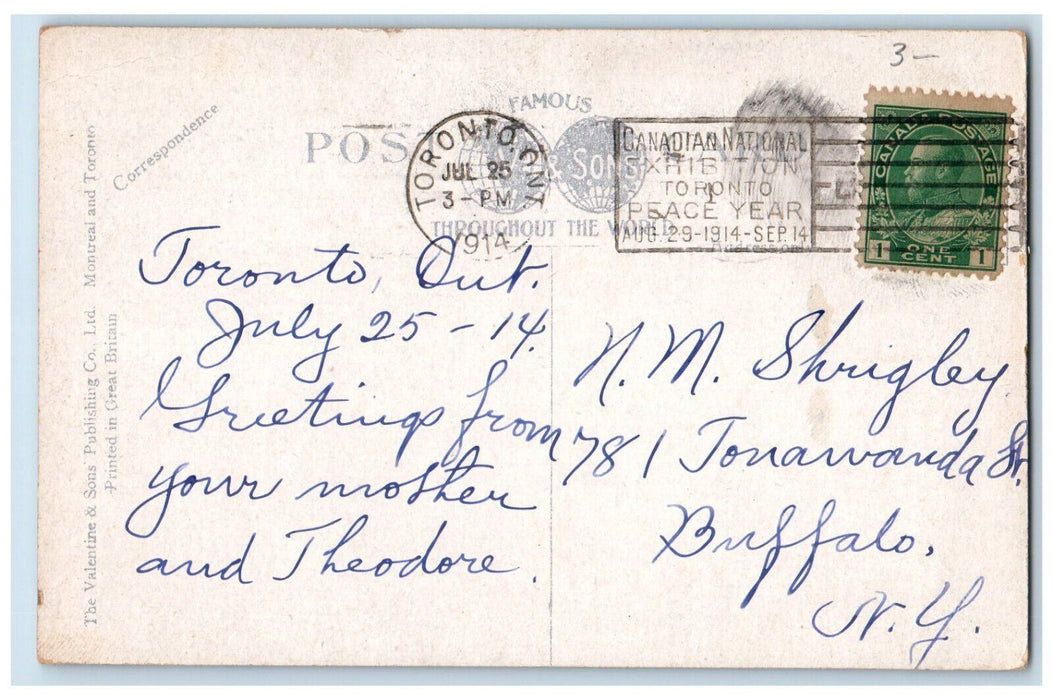 3 –
Correspondence
FAMOUS
POST
& SONS
THROUGHOUT THE WORLD
TORONTO, ONT
JUL 25
3 - PM
1914
CANADIAN NATIONAL
EXHIBITION
TORONTO
PEACE YEAR
AUG. 29-1914-SEP. 14
CANADA POSTAGE
1 ONE CENT 1
Toronto, Ont.
July 25 - 14.
Greetings from
your mother
and Theodore.
N. M. Shrigley
781 Tonawanda St.
Buffalo,
N.Y.
The Valentine & Sons' Publishing Co., Ltd. Montreal and Toronto
Printed in Great Britain